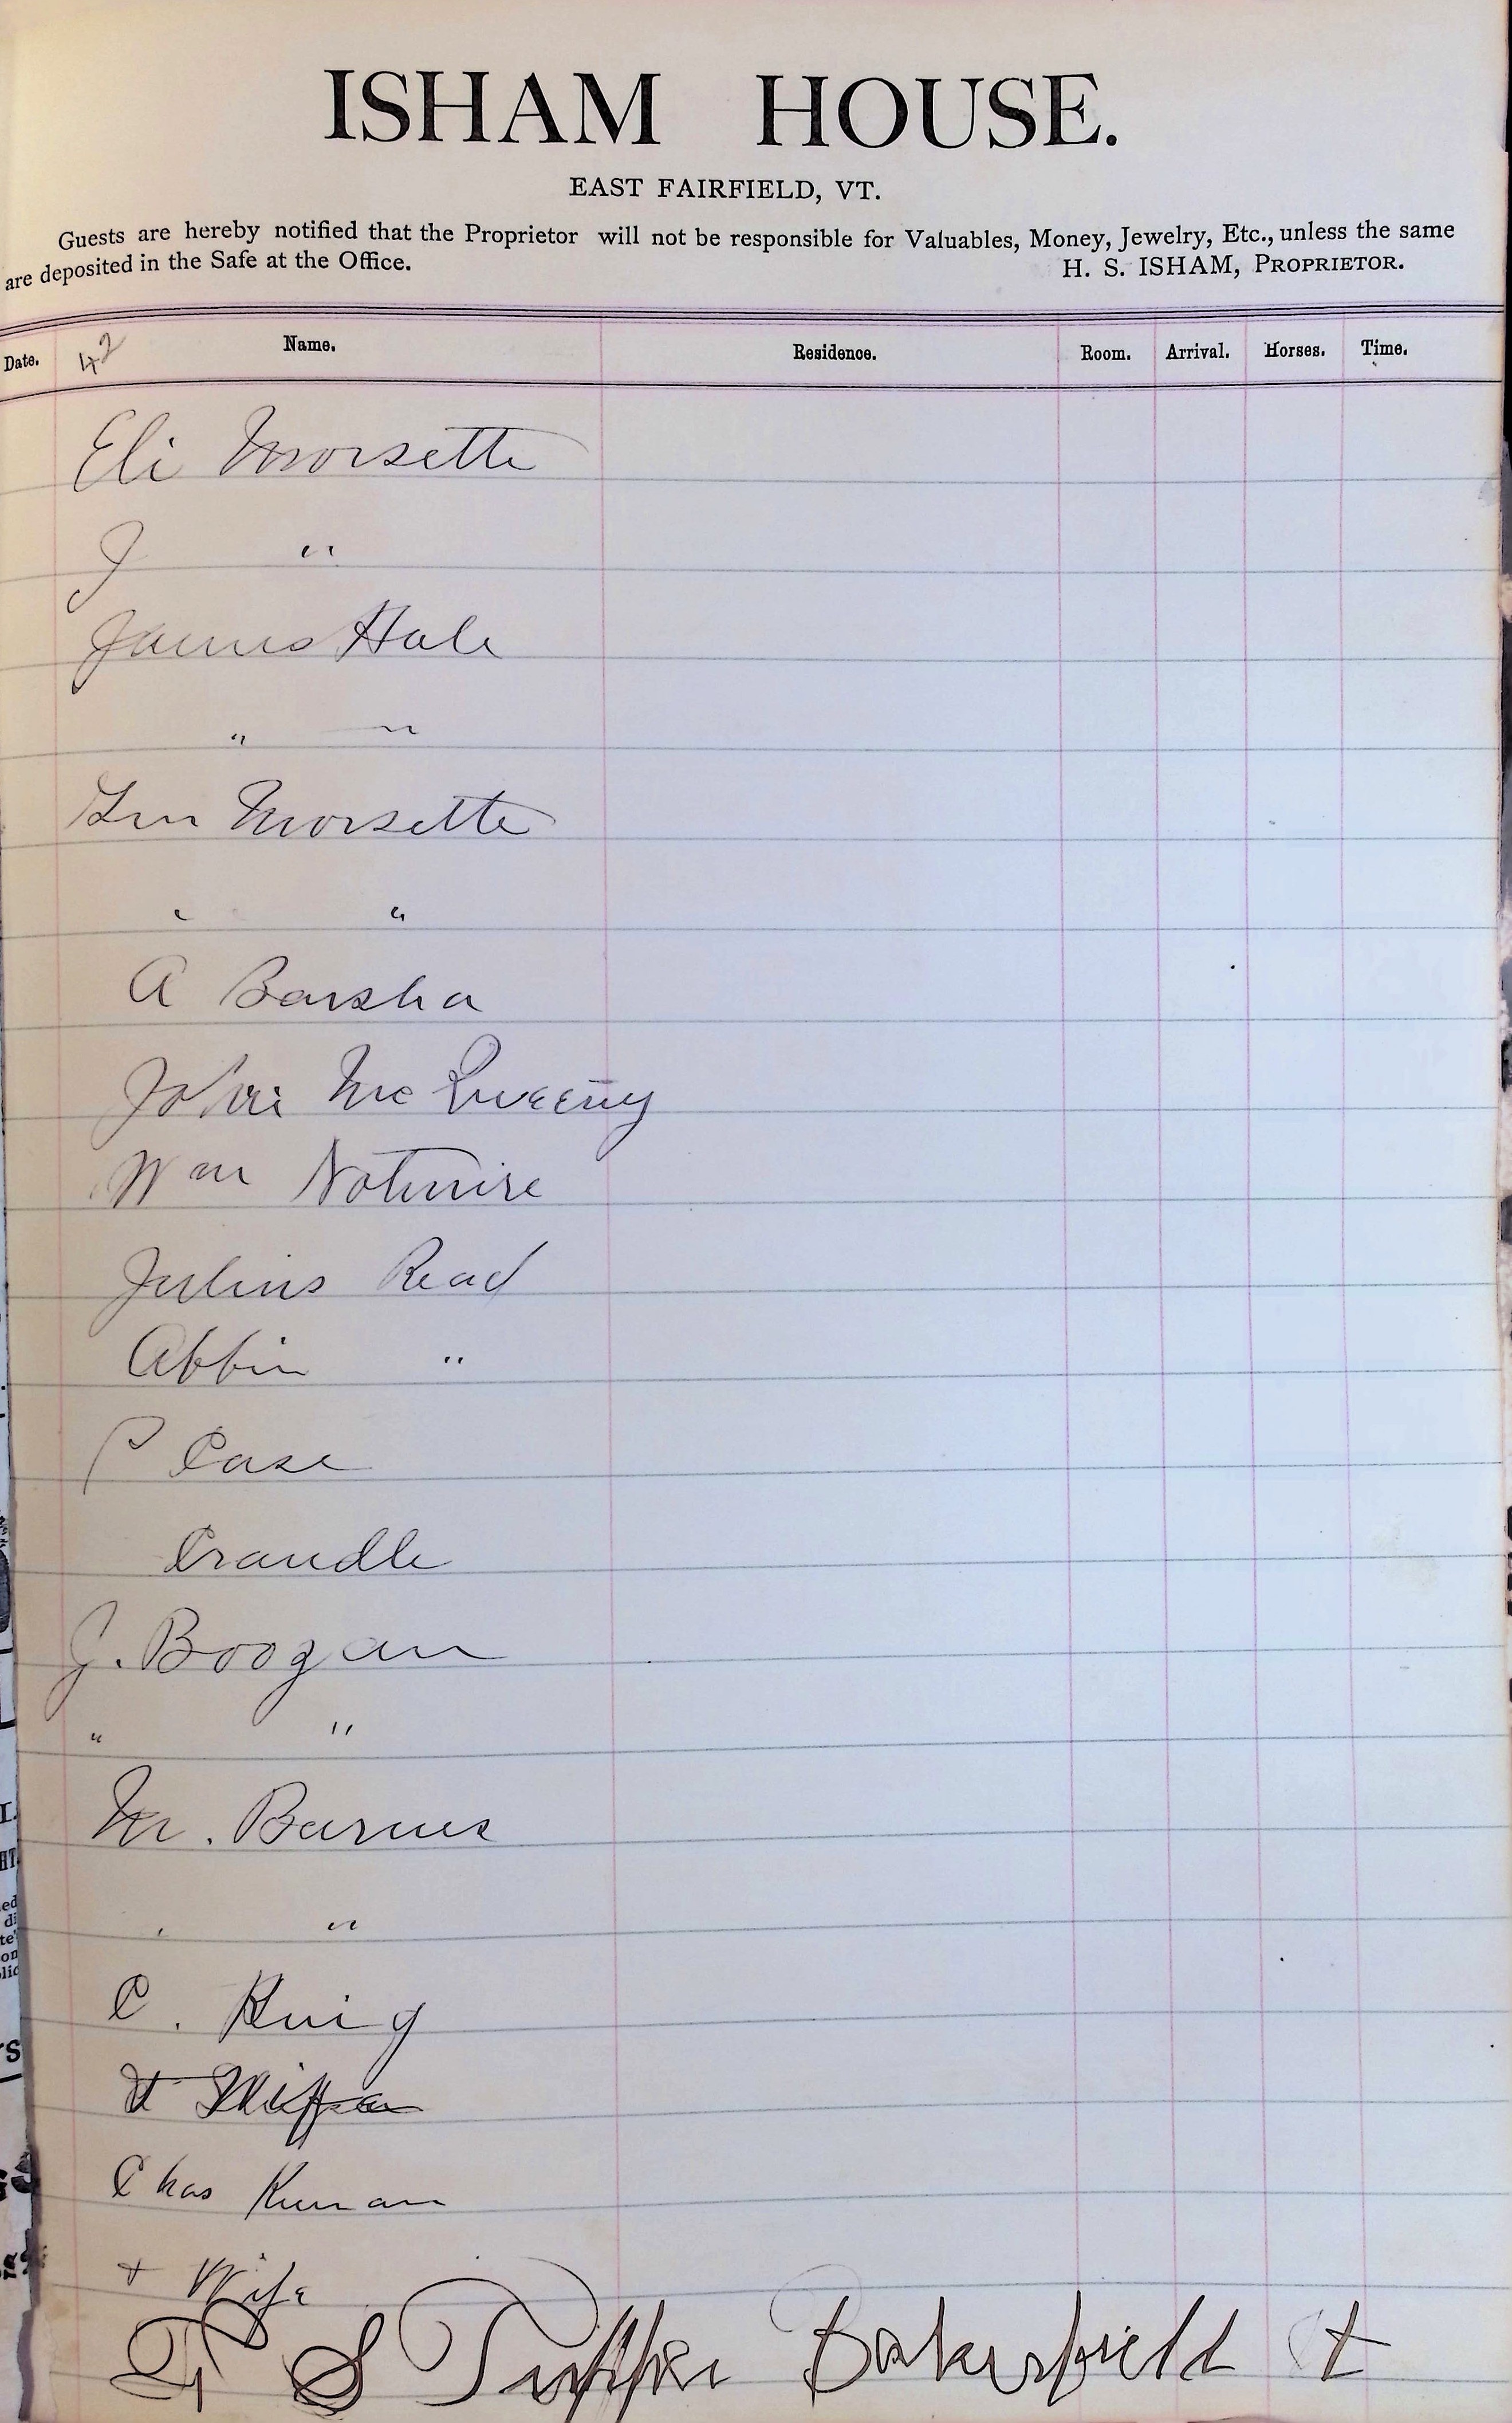 ISHAM HOUSE.
EAST FAIRFIELD, VT.
Guests are hereby notified that the Proprietor will not be responsible for Valuables, Money, Jewelry, Etc., unless the same
are deposited in the Safe at the Office. H. S. ISHAM, PROPRIETOR.
Date. 42 Name. Residence. Room. Arrival. Horses. Time.
Eli Morsette
J "
James Hale
" "
Morsette
" "
A Barsha
John Mc
Wm Notmire
Julius Read
"
P Case
Crandle
J. Boogan
" "
M. Barnes
" "
C. King
Chas
+ Wife
S Bakersfield